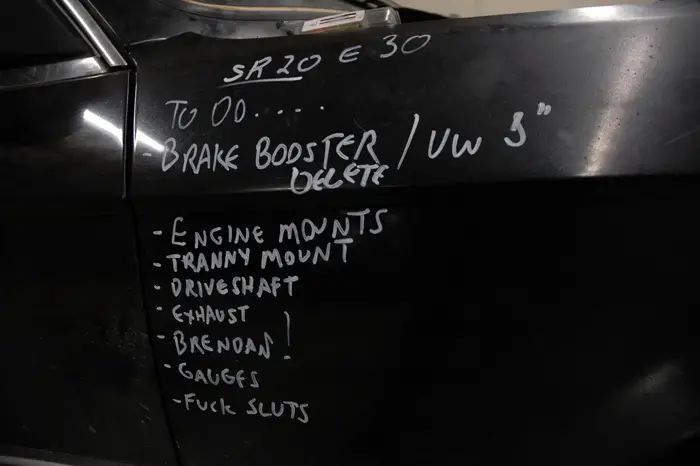 SR20 E 30
TO DO....
- BRAKE BOOSTER / VW 9"
DELETE
- ENGINE MOUNTS
- TRANNY MOUNT
- DRIVESHAFT
- EXHAUST
- BRENDAN!
- GAUGES
- FUCK SLUTS